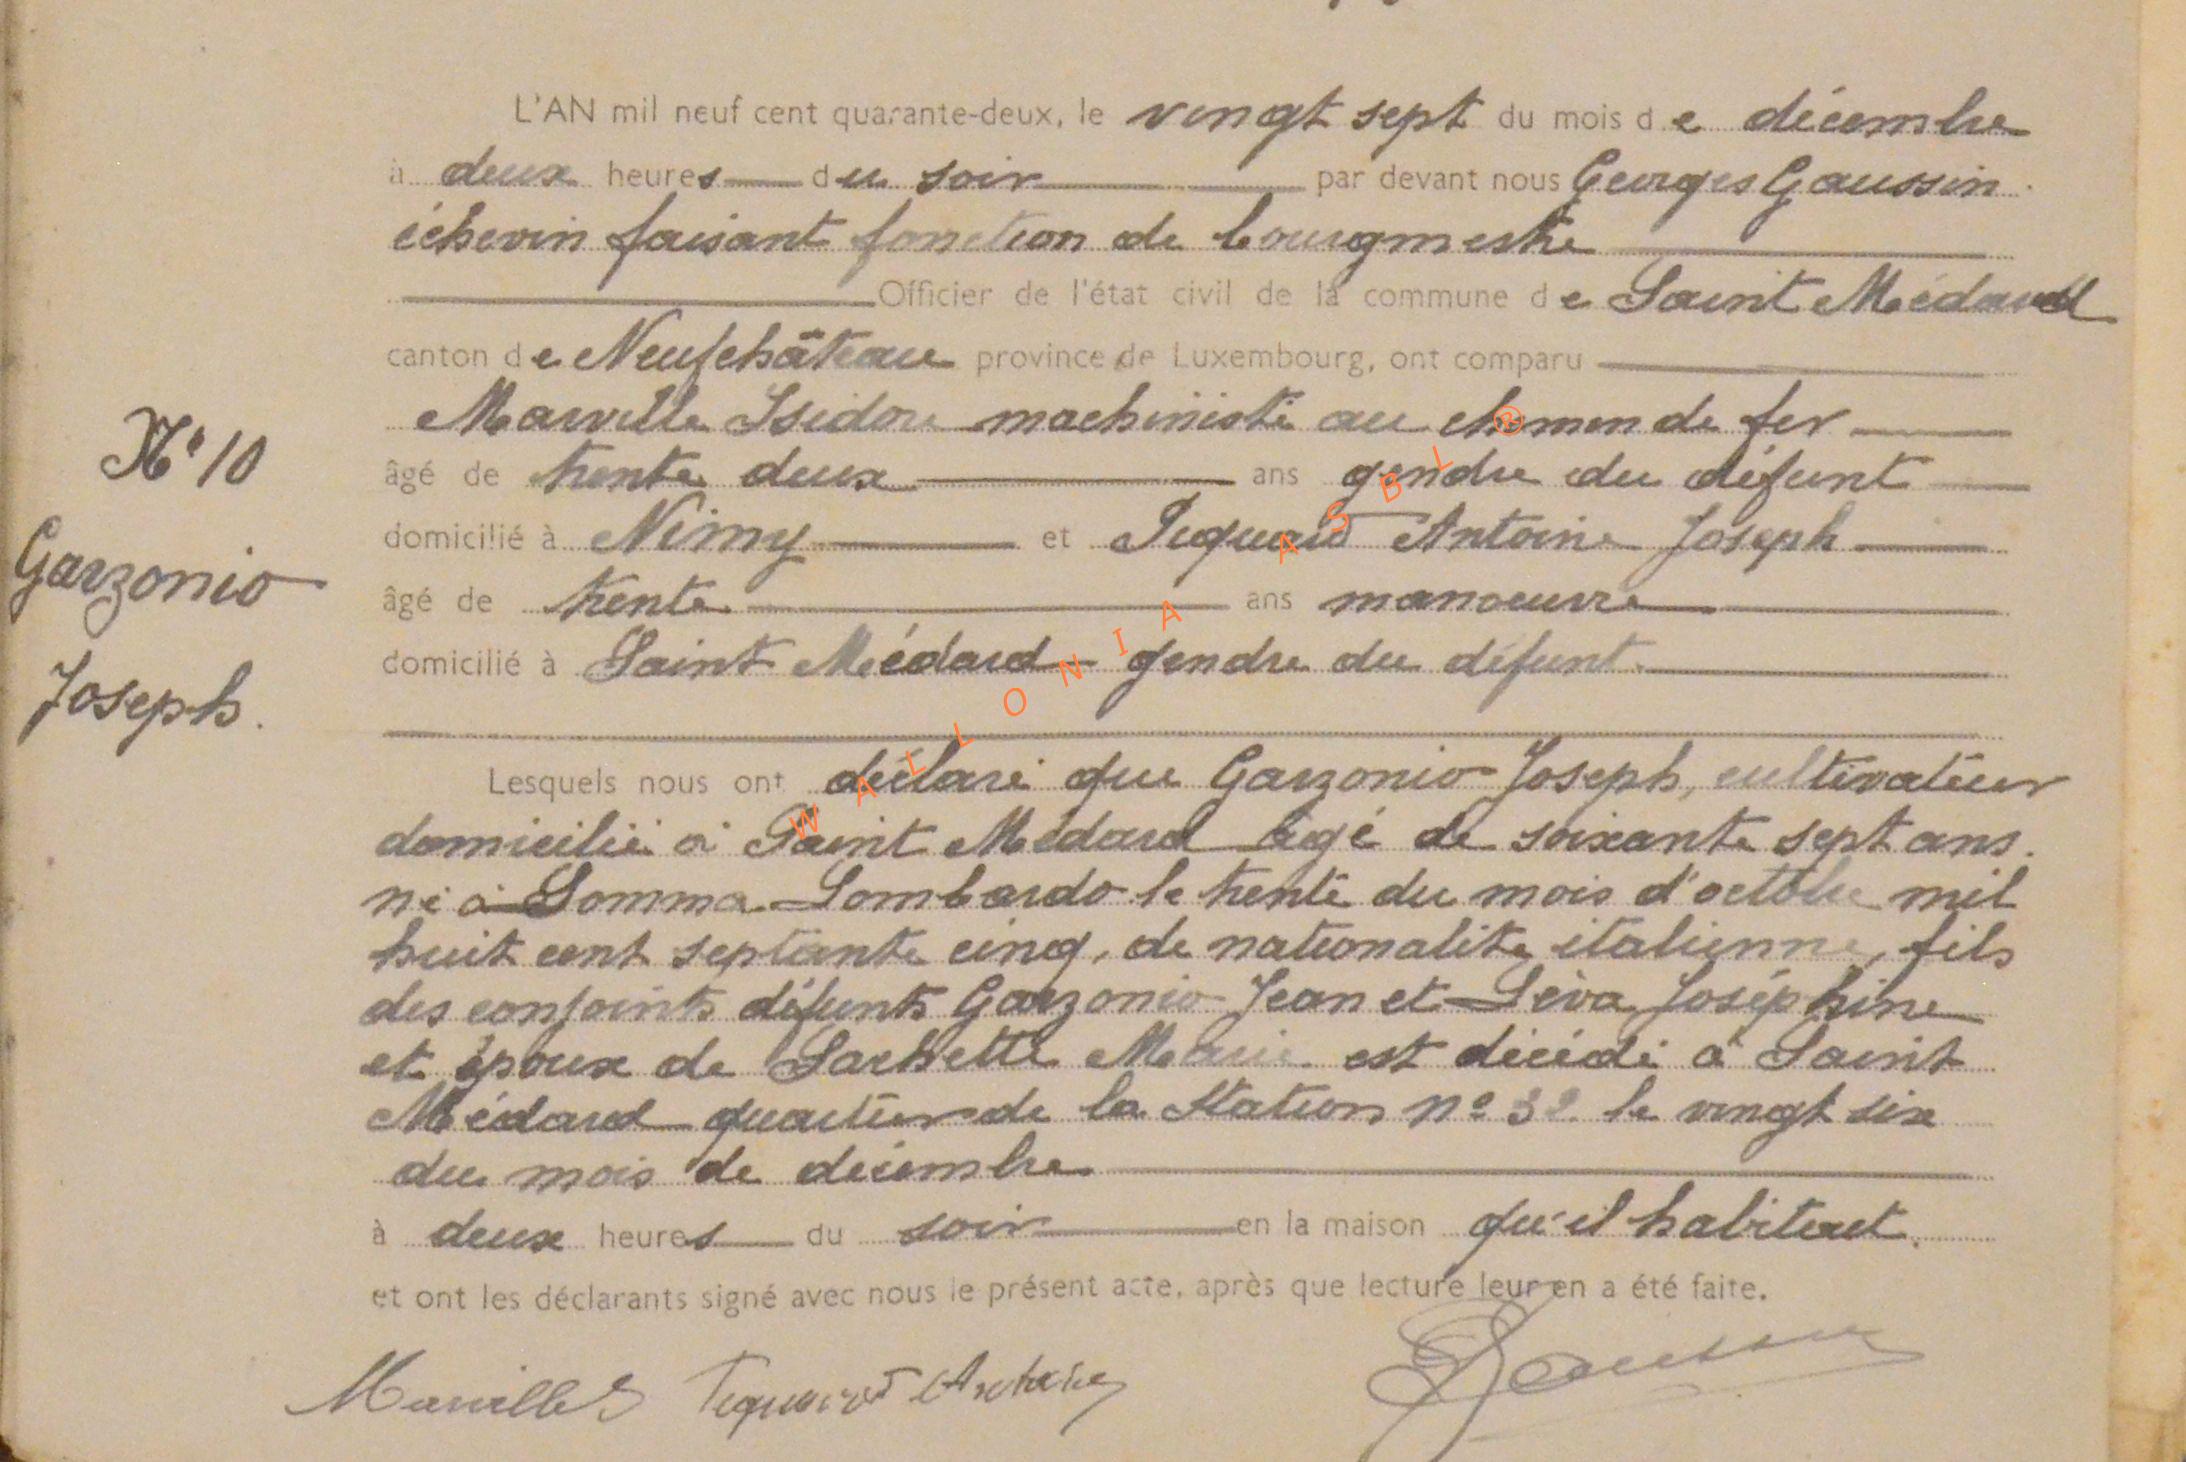 L'AN mil neuf cent quarante-deux, le vingt sept du mois de décembre
à deux heures du soir par devant nous Georges Gaussin
échevin faisant fonction de bourgmestre
Officier de l'état civil de la commune de Saint Médard
canton de Neufchâteau province de Luxembourg, ont comparu
Marville Isidore machiniste au chemin de fer
N° 10
âgé de trente deux ans gendre du défunt
domicilié à Nimy et Piquard Antoine Joseph
Garzonio
âgé de trente ans manoeuvre
domicilié à Saint Médard gendre du défunt.
Joseph.
Lesquels nous ont déclaré que Garzonio Joseph, cultivateur
domicilié à Saint Médard âgé de soixante sept ans.
né à Somma Lombardo le trente du mois d'octobre mil
huit cent septante cinq, de nationalité italienne, fils
des conjoints défunts Garzonio Jean et Joséphine
et époux de Marie est décédé à Saint
Médard quartier de la Station n° le vingt six
du mois de décembre
à deux heures du soir en la maison qu'il habitait.
et ont les déclarants signé avec nous le présent acte, après que lecture leur en a été faite.
Marville Antoine Gaussin
WALLONIA ASBL ®